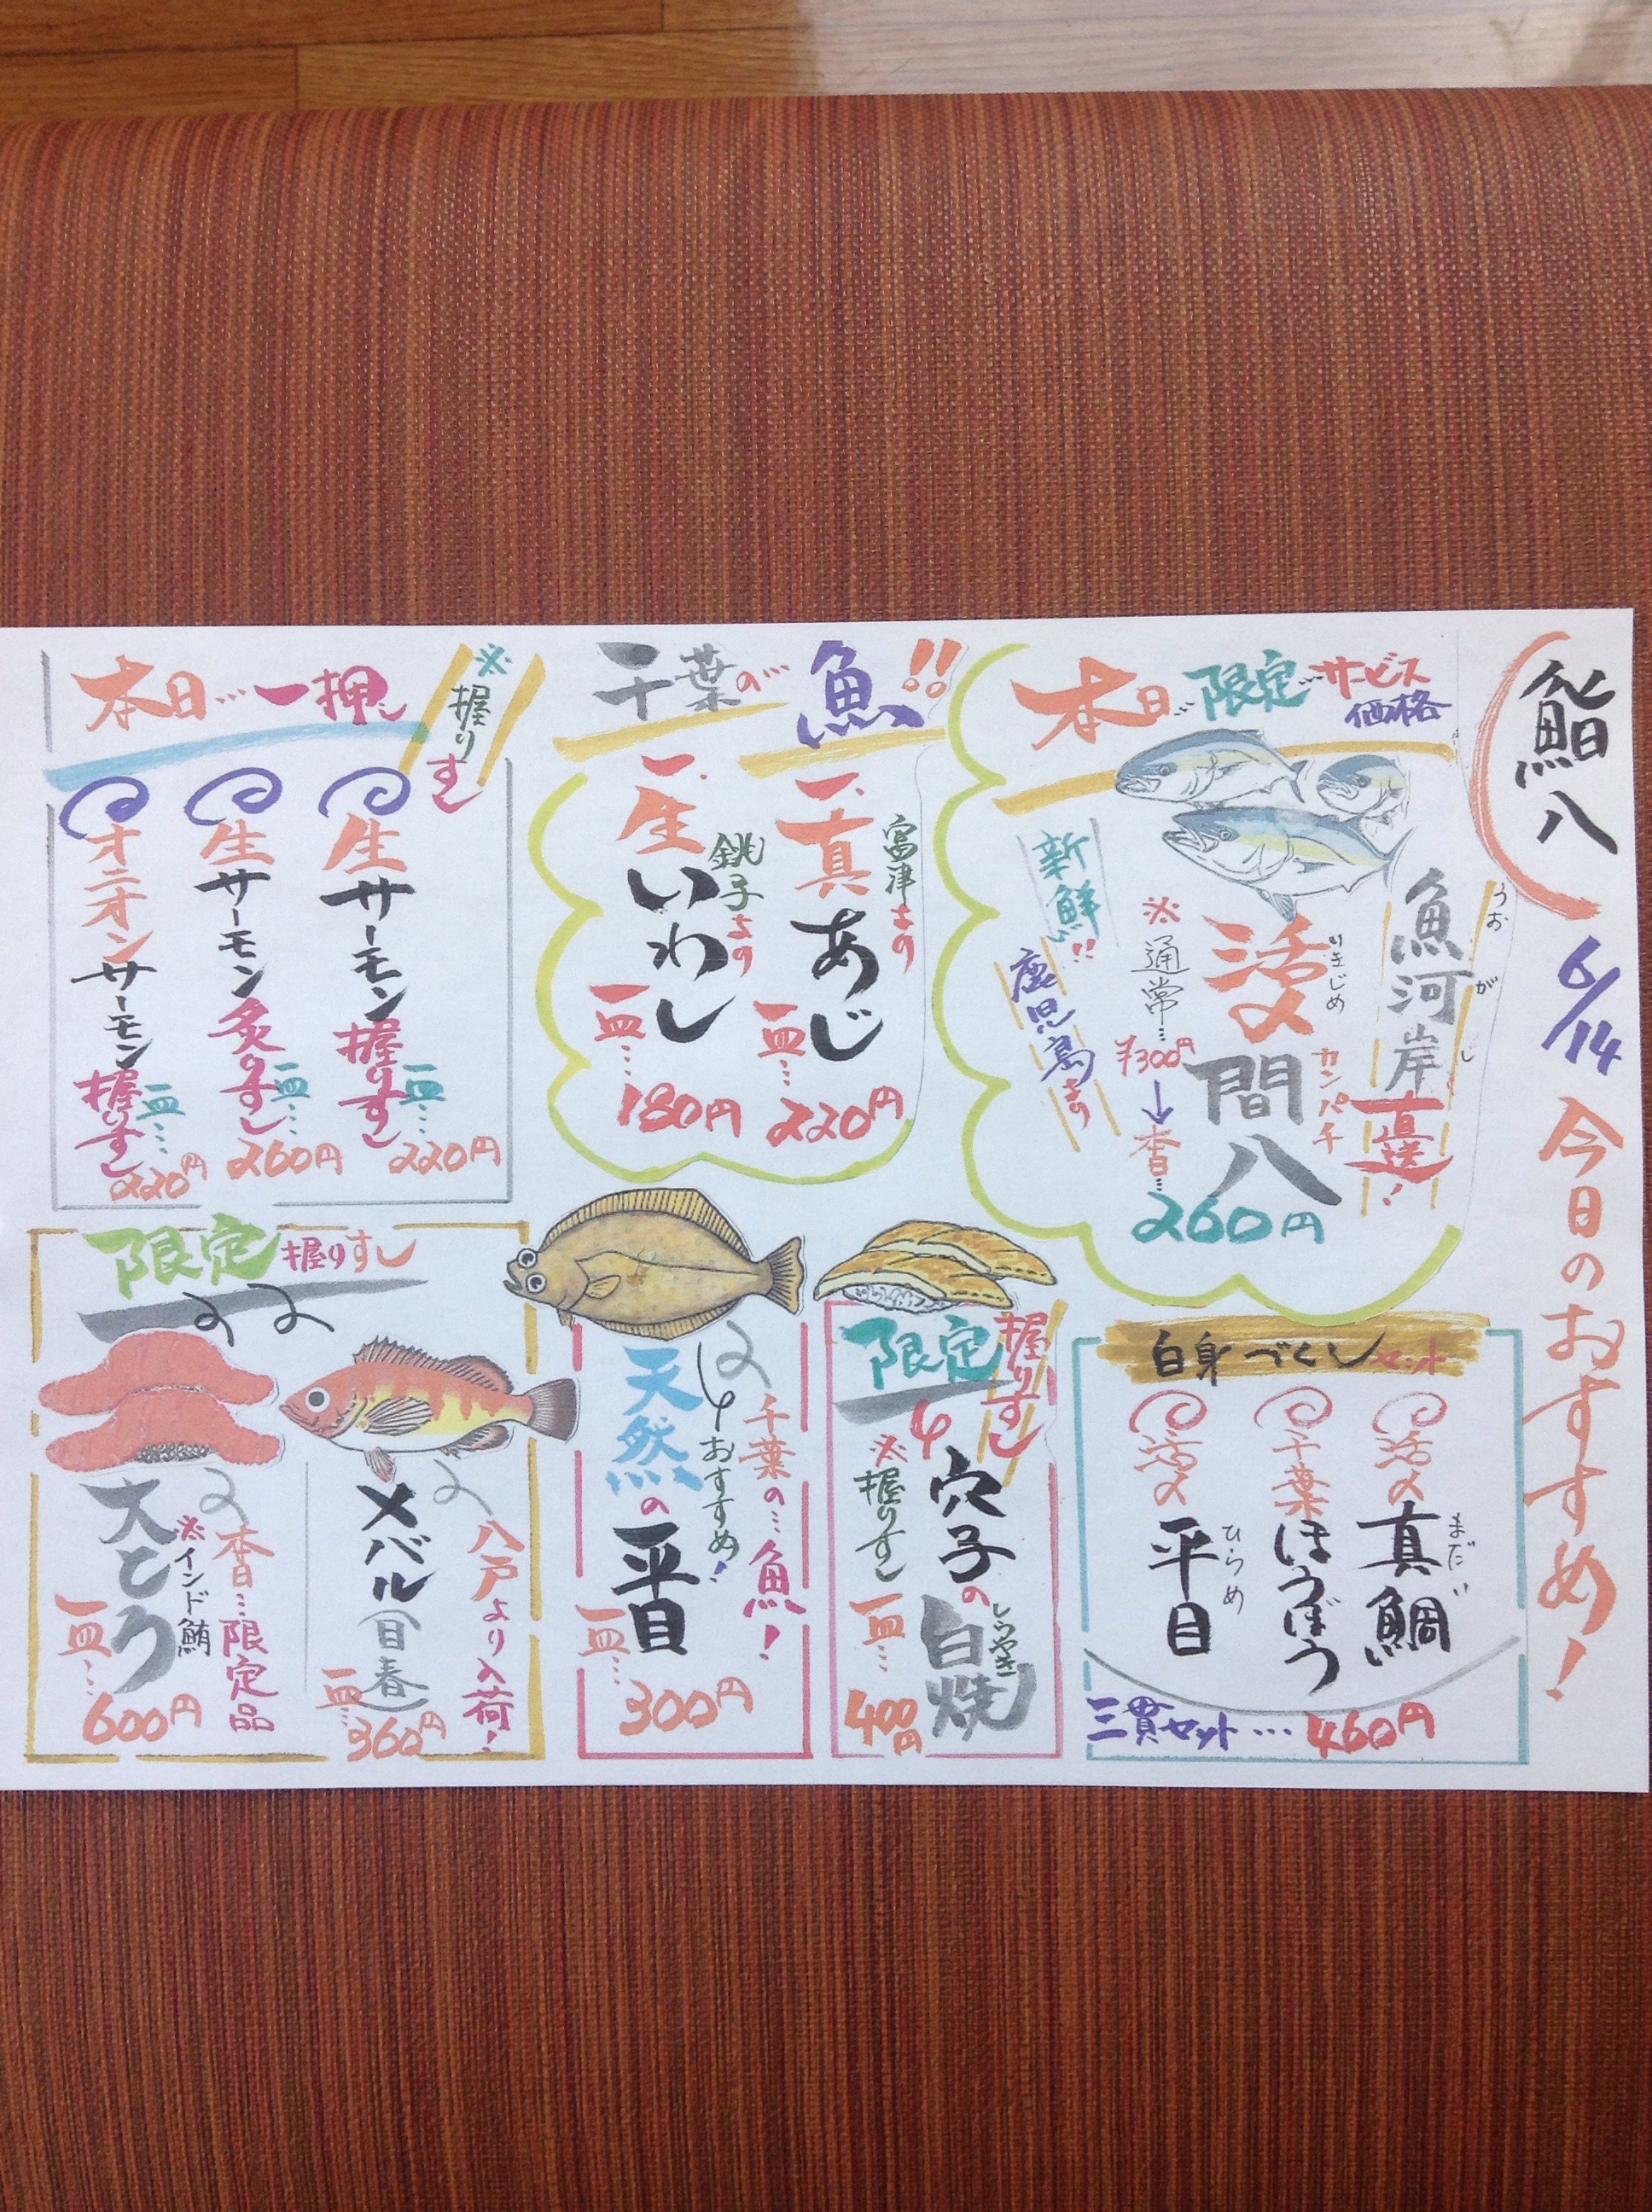 鮨八
6/14 今日のおすすめ!
本日…限定…サービス
価格
魚河岸直送!
うおがし
活〆
いきじめ
間八
カンパチ
※通常…¥300円
↓
本日…
260円
新鮮!!
鹿児島より
千葉の魚!!
一、真あじ
富津より
一皿…
220円
一、生いわし
銚子より
一皿…
180円
本日…一押し
※握りすし
生サーモン握りすし
一皿…
220円
生サーモン炙りすし
一皿…
260円
オニオンサーモン握りすし
一皿…
220円
白身づくしセット
活〆真鯛
まだい
千葉ほうぼう
活〆平目
ひらめ
三貫セット…460円
限定
握りすし
穴子の白焼
しらやき
※握りすし
一皿…
400円
千葉の…魚!
おすすめ!
天然の平目
一皿…
300円
限定握りすし
八戸より入荷!
メバル(目春)
一皿…
360円
本日…限定品
※インド鮪
大とろ
一皿…
600円